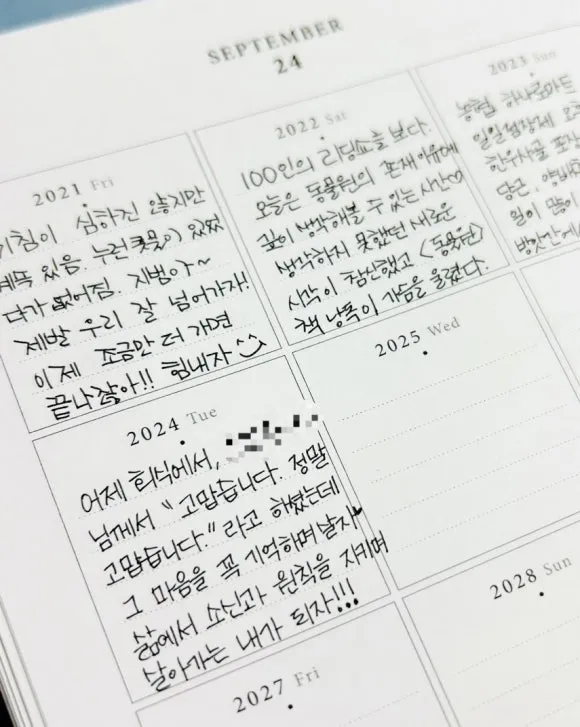 SEPTEMBER
24
2021 Fri
기침이 심하진 않지만
계속 있음. 누런 콧물이 있었
다가 없어짐. 지범아~
제발 우리 잘 넘어가자!
이제 조금만 더 가면
끝나잖아!! 힘내자
2022 Sat
100인의 리딩쇼를 보다.
오늘은 동물원의 존재이유에
깊이 생각해볼 수 있는 시간♡
생각하지 못했던 새로운
시각이 참신했고 <동물원>
책 낭독이 가슴을 울렸다.
2023 Sun
농협 하나로마트
일일범장제
한우사골 포장
당근, 양배
원이 많이
방앗간에
2024 Tue
어제 회식에서,
님께서 "고맙습니다. 정말
고맙습니다." 라고 하셨는데
그 마음을 꼭 기억해며 살자♥
삶에서 소신과 원칙을 지키며
살아가는 내가 되자!!!
2025 Wed
2027 Fri
2028 Sun